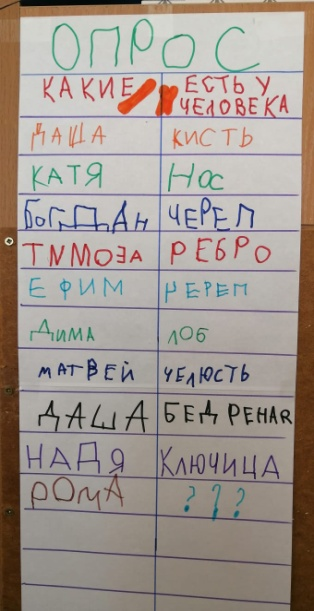 ОПРОС
КАКИЕ ЕСТЬ У
ЧЕЛОВЕКА
ДАША КИСТЬ
КАТЯ НОС
БОГДДАН ЧЕРЕП
ТИМОЗА РЕБРО
ЕФИМ ЧЕРЕП
ДИМА ЛОБ
МАТВЕЙ ЧЕЛЮСТЬ
ДАША БЕДРЕНАЯ
НАДЯ КЛЮЧИЦА
РОМА ???